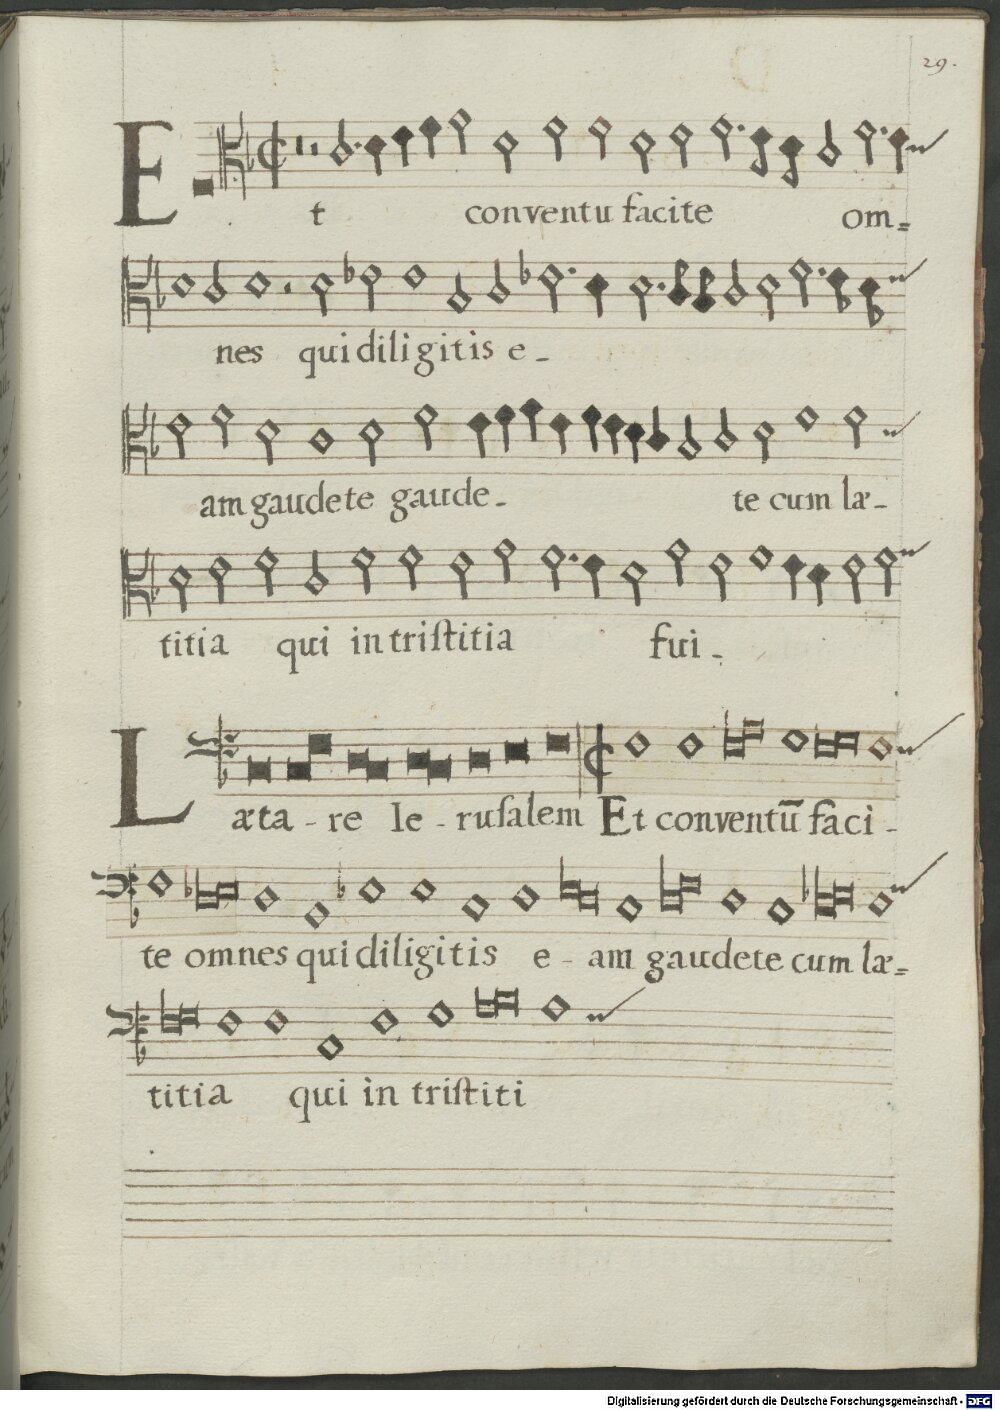 29.
Et conventu facite om=
nes qui diligitis e-
am gaudete gaude- te cum læ-
titia qui in triſtitia fui-
Lætа-re Ie-ruſalem Et conventū faci-
te omnes qui diligitis e-am gaudete cum læ=
titia qui in triſtiti
Digitalisierung gefördert durch die Deutsche Forschungsgemeinschaft - DFG